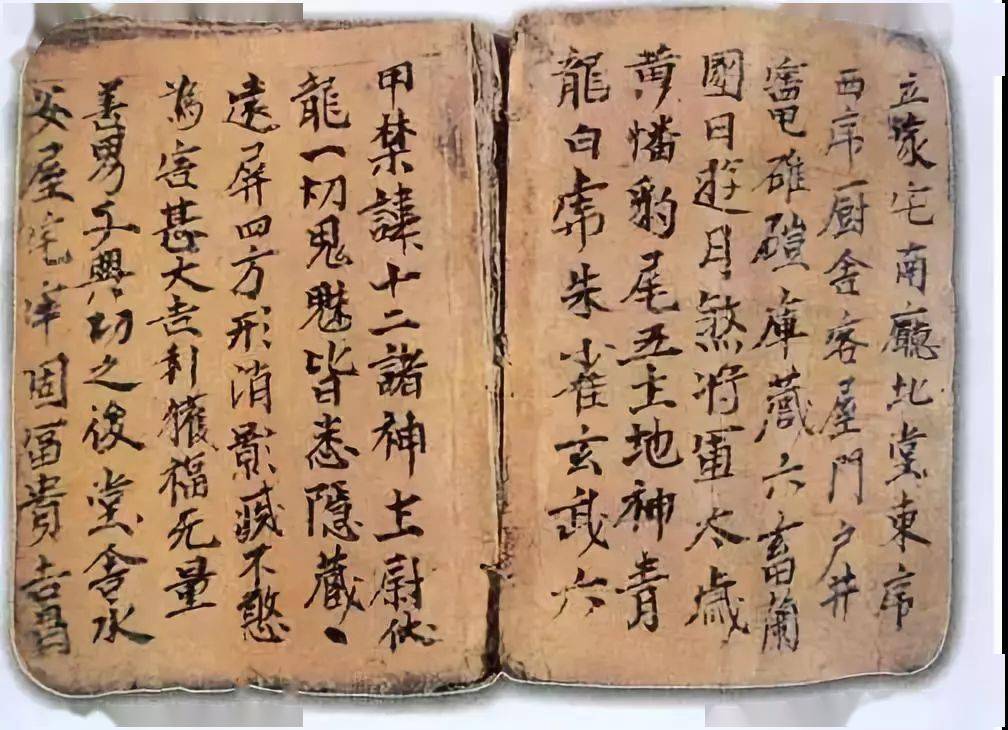 立家宅南廳北堂東序
西序厨舍客屋門户井
竈碓磑庫藏六畜蘭
國日遊月煞將軍太歲
黄幡豹尾五土地神青
龍白虎朱雀玄武六
甲禁諱十二諸神土尉伏
龍一切鬼魅皆悉隱藏、
遠屏四方形消影滅不憨
為害甚大吉利獲福无量
善男子興切之後堂舍水
安屋宅牢固富貴吉昌